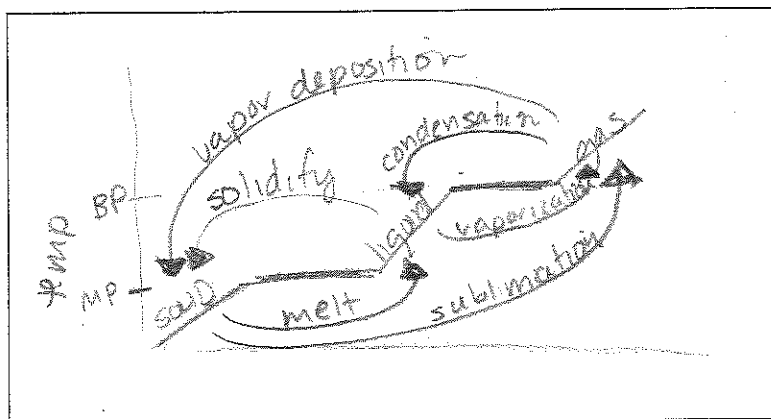 vapor deposition
condensation
gas
solidify
BP
liquid
vaporization
temp
MP
solid
melt
sublimation